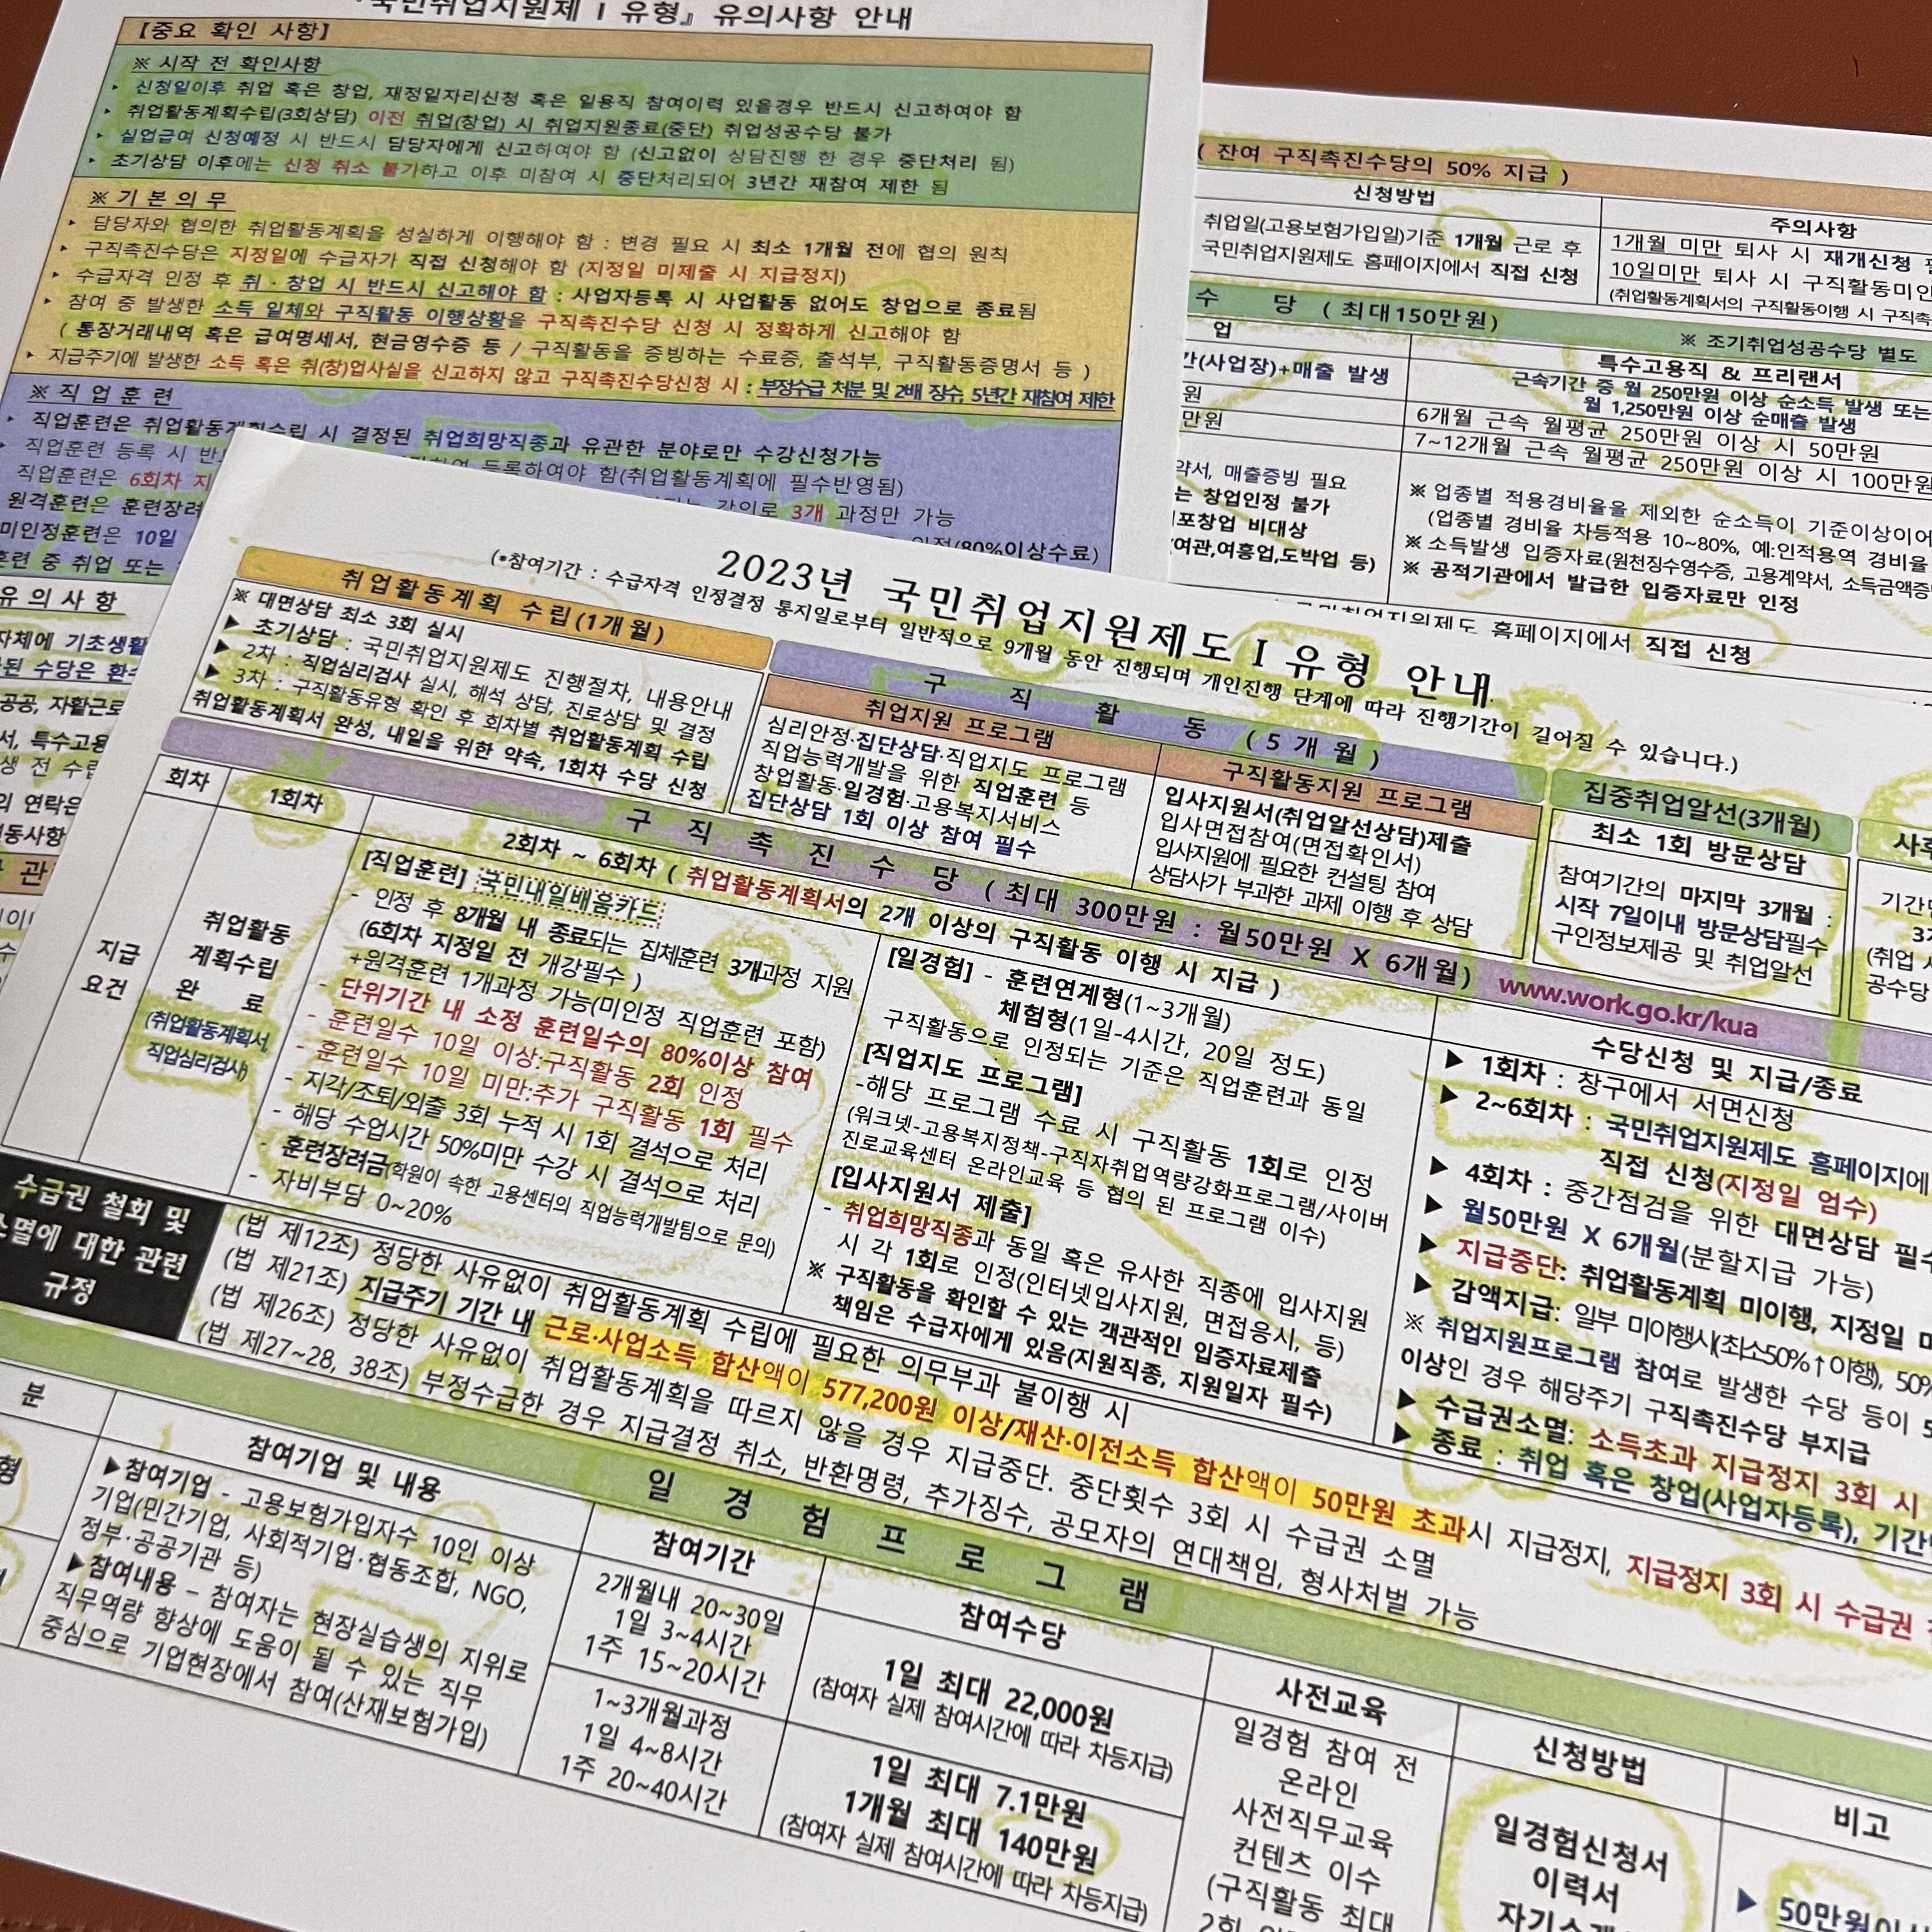 『국민취업지원제 I 유형』 유의사항 안내
【중요 확인 사항】
※ 시작 전 확인사항
‣ 신청일이후 취업 혹은 창업, 재정일자리신청 혹은 일용직 참여이력 있을경우 반드시 신고하여야 함
‣ 취업활동계획수립(3회상담) 이전 취업(창업) 시 취업지원종료(중단) 취업성공수당 불가
‣ 실업급여 신청예정 시 반드시 담당자에게 신고하여야 함 (신고없이 상담진행 한 경우 중단처리 됨)
‣ 초기상담 이후에는 신청 취소 불가하고 이후 미참여 시 중단처리되어 3년간 재참여 제한 됨
※ 기본의무
‣ 담당자와 협의한 취업활동계획을 성실하게 이행해야 함 : 변경 필요 시 최소 1개월 전에 협의 원칙
‣ 구직촉진수당은 지정일에 수급자가 직접 신청해야 함 (지정일 미제출 시 지급정지)
‣ 수급자격 인정 후 취·창업 시 반드시 신고해야 함 : 사업자등록 시 사업활동 없어도 창업으로 종료됨
‣ 참여 중 발생한 소득 일체와 구직활동 이행상황을 구직촉진수당 신청 시 정확하게 신고해야 함
( 통장거래내역 혹은 급여명세서, 현금영수증 등 / 구직활동을 증빙하는 수료증, 출석부, 구직활동증명서 등 )
‣ 지급주기에 발생한 소득 혹은 취(창)업사실을 신고하지 않고 구직촉진수당신청 시 : 부정수급 처분 및 2배 징수, 5년간 재참여 제한
※ 직업훈련
‣ 직업훈련은 취업활동계획수립 시 결정된 취업희망직종과 유관한 분야로만 수강신청가능
‣ 직업훈련 등록 시 반드 등록하여야 함(취업활동계획에 필수반영됨)
직업훈련은 6회차 지 강의로 3개 과정만 가능
원격훈련은 훈련장려 인정(80%이상수료)
미인정훈련은 10일
훈련 중 취업 또는
유의사항
자체에 기초생활
된 수당은 환수
공공, 자활근로
서, 특수고용
생 전 수급
의 연락은
동사항
관
( 잔여 구직촉진수당의 50% 지급 )
신청방법
주의사항
취업일(고용보험가입일)기준 1개월 근로 후
국민취업지원제도 홈페이지에서 직접 신청
1개월 미만 퇴사 시 재개신청
10일미만 퇴사 시 구직활동미인
(취업활동계획서의 구직활동이행 시 구직촉
수 당 ( 최대150만원)
※ 조기취업성공수당 별도
업
간(사업장)+매출 발생
원
만원
특수고용직 & 프리랜서
근속기간 중 월 250만원 이상 순소득 발생 또는
월 1,250만원 이상 순매출 발생
6개월 근속 월평균 250만원 이상 시 50만원
7~12개월 근속 월평균 250만원 이상 시 100만원
약서, 매출증빙 필요
는 창업인정 불가
포창업 비대상
여관,여흥업,도박업 등)
※ 업종별 적용경비율을 제외한 순소득이 기준이상이어
(업종별 경비율 차등적용 10~80%, 예:인적용역 경비율
※ 소득발생 입증자료(원천징수영수증, 고용계약서, 소득금액증
※ 공적기관에서 발급한 입증자료만 인정
국민취업지원제도 홈페이지에서 직접 신청
2023년 국민취업지원제도 I 유형 안내
(*참여기간 : 수급자격 인정결정 통지일로부터 일반적으로 9개월 동안 진행되며 개인진행 단계에 따라 진행기간이 길어질 수 있습니다.)
취업활동계획 수립(1개월)
※ 대면상담 최소 3회 실시
▶ 초기상담 : 국민취업지원제도 진행절차, 내용안내
▶ 2차 : 직업심리검사 실시, 해석 상담, 진로상담 및 결정
▶ 3차 : 구직활동유형 확인 후 회차별 취업활동계획 수립
취업활동계획서 완성, 내일을 위한 약속, 1회차 수당 신청
구 직 활 동 ( 5 개 월 )
취업지원 프로그램
심리안정·집단상담·직업지도 프로그램
직업능력개발을 위한 직업훈련 등
창업활동·일경험·고용복지서비스
집단상담 1회 이상 참여 필수
구직활동지원 프로그램
입사지원서(취업알선상담)제출
입사면접참여(면접확인서)
입사지원에 필요한 컨설팅 참여
상담사가 부과한 과제 이행 후 상담
집중취업알선(3개월)
최소 1회 방문상담
참여기간의 마지막 3개월 :
시작 7일이내 방문상담필수
구인정보제공 및 취업알선
사후
기간만
3개
(취업 시
공수당
구 직 촉 진 수 당 ( 최대 300만원 : 월50만원 X 6개월) www.work.go.kr/kua
회차
1회차
2회차 ~ 6회차 ( 취업활동계획서의 2개 이상의 구직활동 이행 시 지급 )
수당신청 및 지급/종료
지급
요건
취업활동
계획수립
완 료
(취업활동계획서,
직업심리검사)
[직업훈련] 국민내일배움카드
- 인정 후 8개월 내 종료되는 집체훈련 3개과정 지원
(6회차 지정일 전 개강필수 )
+원격훈련 1개과정 가능(미인정 직업훈련 포함)
- 단위기간 내 소정 훈련일수의 80%이상 참여
- 훈련일수 10일 이상:구직활동 2회 인정
- 훈련일수 10일 미만:추가 구직활동 1회 필수
- 지각/조퇴/외출 3회 누적 시 1회 결석으로 처리
- 해당 수업시간 50%미만 수강 시 결석으로 처리
- 훈련장려금(학원이 속한 고용센터의 직업능력개발팀으로 문의)
- 자비부담 0~20%
[일경험] - 훈련연계형(1~3개월)
체험형(1일-4시간, 20일 정도)
구직활동으로 인정되는 기준은 직업훈련과 동일
[직업지도 프로그램]
-해당 프로그램 수료 시 구직활동 1회로 인정
(워크넷-고용복지정책-구직자취업역량강화프로그램/사이버
진로교육센터 온라인교육 등 협의 된 프로그램 이수)
[입사지원서 제출]
- 취업희망직종과 동일 혹은 유사한 직종에 입사지원
시 각 1회로 인정(인터넷입사지원, 면접응시, 등)
※ 구직활동을 확인할 수 있는 객관적인 입증자료제출
책임은 수급자에게 있음(지원직종, 지원일자 필수)
▶ 1회차 : 창구에서 서면신청
▶ 2~6회차 : 국민취업지원제도 홈페이지에
직접 신청(지정일 엄수)
▶ 4회차 : 중간점검을 위한 대면상담 필수
▶ 월50만원 X 6개월(분할지급 가능)
▶ 지급중단: 취업활동계획 미이행, 지정일 미
▶ 감액지급: 일부 미이행시(최소50%↑이행), 50%
※ 취업지원프로그램 참여로 발생한 수당 등이 5
이상인 경우 해당주기 구직촉진수당 부지급
▶ 수급권소멸: 소득초과 지급정지 3회 시
▶ 종료 : 취업 혹은 창업(사업자등록), 기간만
수급권 철회 및
소멸에 대한 관련
규정
(법 제12조) 정당한 사유없이 취업활동계획 수립에 필요한 의무부과 불이행 시
(법 제21조) 지급주기 기간 내 근로·사업소득 합산액이 577,200원 이상/재산·이전소득 합산액이 50만원 초과시 지급정지, 지급정지 3회 시 수급권
(법 제26조) 정당한 사유없이 취업활동계획을 따르지 않을 경우 지급중단. 중단횟수 3회 시 수급권 소멸
(법 제27~28, 38조) 부정수급한 경우 지급결정 취소, 반환명령, 추가징수, 공모자의 연대책임, 형사처벌 가능
일 경 험 프 로 그 램
분
형
참여기업 및 내용
▶참여기업 - 고용보험가입자수 10인 이상
기업(민간기업, 사회적기업·협동조합, NGO,
정부·공공기관 등)
▶참여내용 – 참여자는 현장실습생의 지위로
직무역량 향상에 도움이 될 수 있는 직무
중심으로 기업현장에서 참여(산재보험가입)
참여기간
2개월내 20~30일
1일 3~4시간
1주 15~20시간
1~3개월과정
1일 4~8시간
1주 20~40시간
참여수당
1일 최대 22,000원
(참여자 실제 참여시간에 따라 차등지급)
1일 최대 7.1만원
1개월 최대 140만원
(참여자 실제 참여시간에 따라 차등지급)
사전교육
일경험 참여 전
온라인
사전직무교육
컨텐츠 이수
(구직활동 최대
신청방법
일경험신청서
이력서
비고
▶ 50만원이